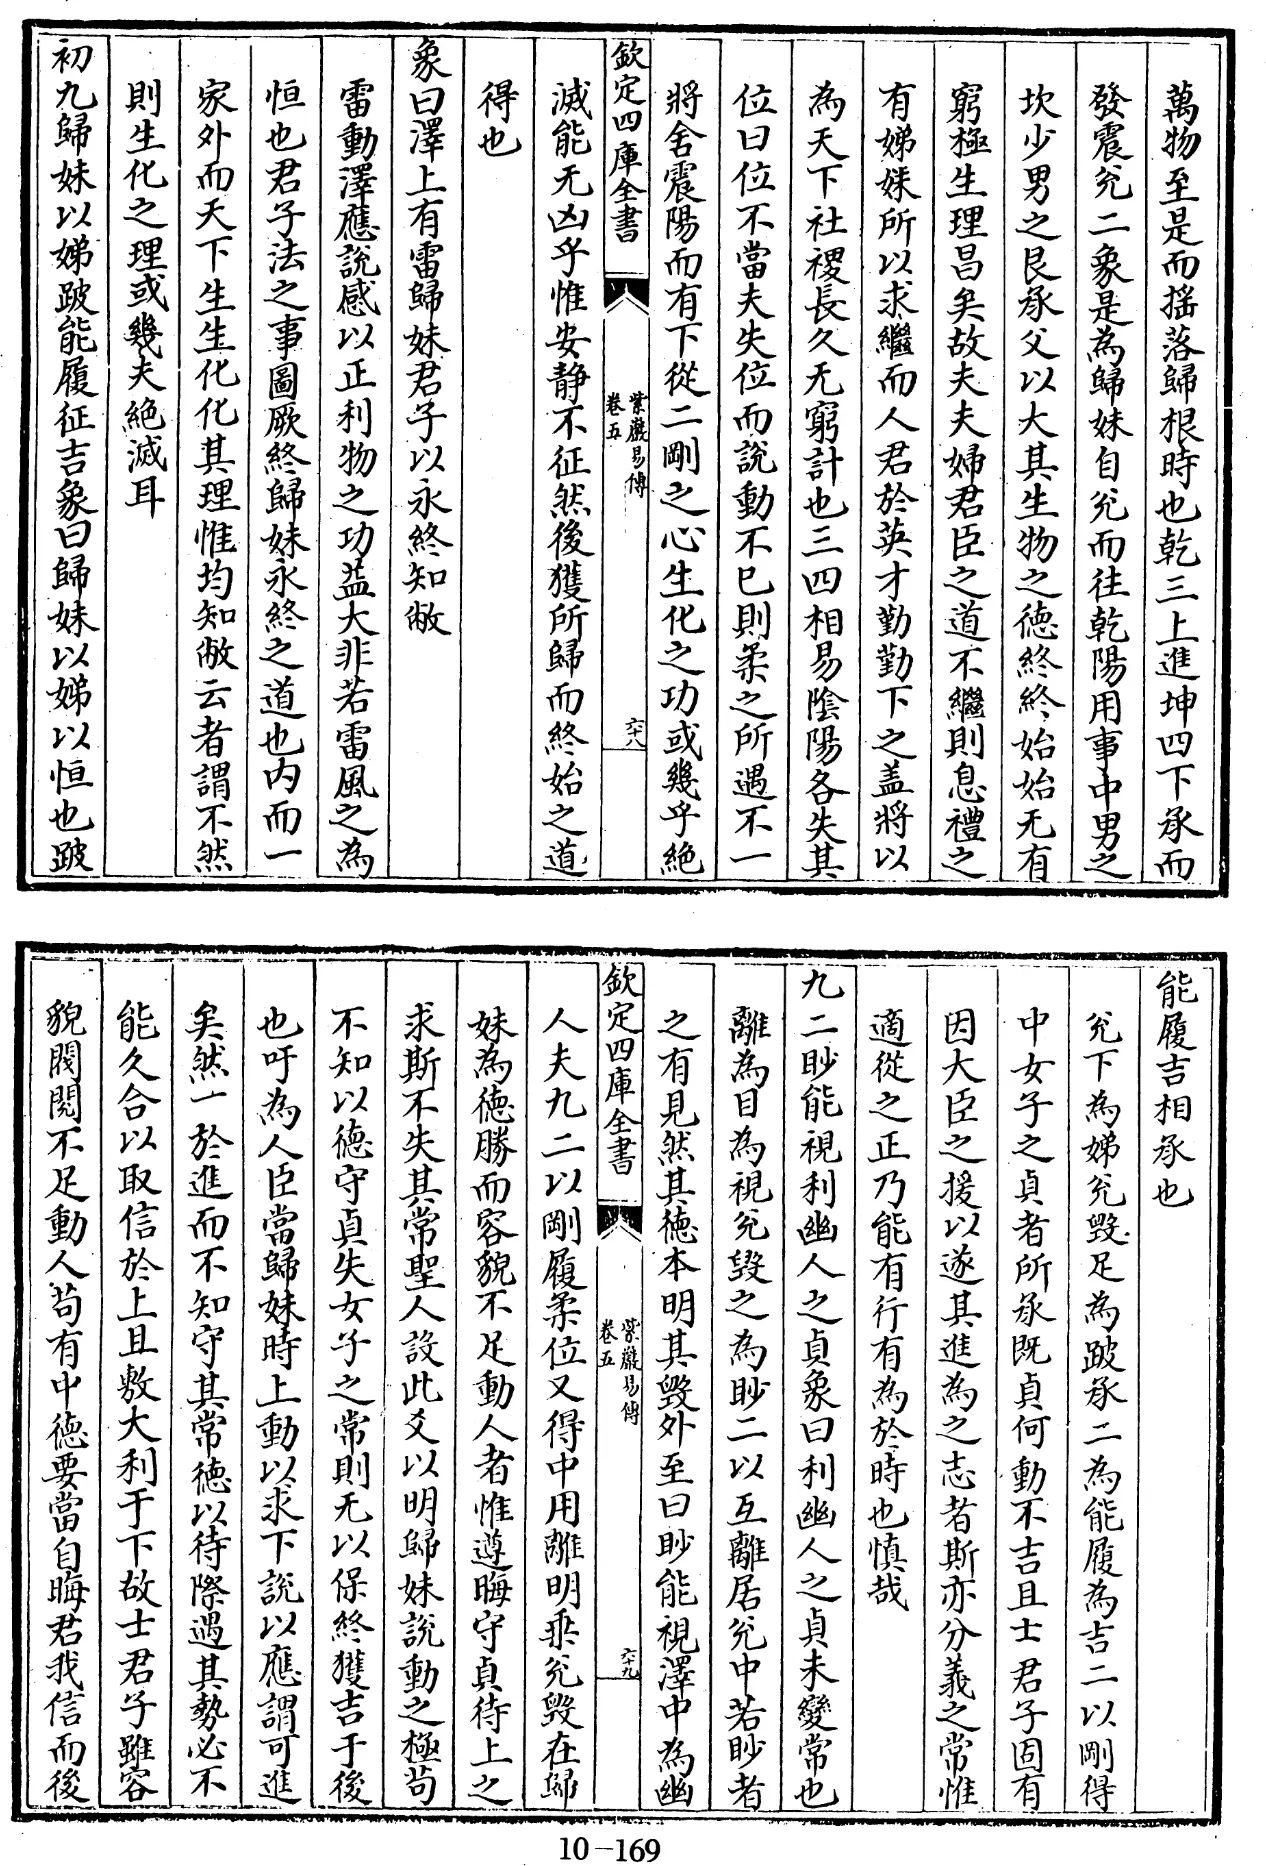 萬物至是而揺落歸根時也乾三上進坤四下承而
發震兊二象是為歸妹自兊而往乾陽用事中男之
坎少男之艮承父以大其生物之徳終終始始无有
窮極生理昌矣故夫夫婦君臣之道不繼則息禮之
有娣姪所以求繼而人君於英才勤勤下之盖將以
為天下社稷長久无窮計也三四相易陰陽各失其
位曰位不當夫失位而說動不已則柔之所遇不一
將舍震陽而有下從二剛之心生化之功或幾乎絶
欽定四庫全書
紫巖易傳
卷五
六十八
滅能无凶乎惟安静不征然後獲所歸而終始之道
得也
象曰澤上有雷歸妹君子以永終知敝
雷動澤應說感以正利物之功益大非若雷風之為
恒也君子法之事圖厥終歸妹永終之道也内而一
家外而天下生生化化其理惟均知敝云者謂不然
則生化之理或幾夫絶滅耳
初九歸妹以娣跛能履征吉象曰歸妹以娣以恒也跛
能履吉相承也
兊下為娣兊毁足為跛承二為能履為吉二以剛得
中女子之貞者所承既貞何動不吉且士君子固有
因大臣之援以遂其進為之志者斯亦分義之常惟
適從之正乃能有行有為於時也慎哉
九二眇能視利幽人之貞象曰利幽人之貞未變常也
離為目為視兊毁之為眇二以互離居兊中若眇者
之有見然其徳本明其毁外至曰眇能視澤中為幽
欽定四庫全書
紫巖易傳
卷五
六十九
人夫九二以剛履柔位又得中用離明乗兊毁在歸
妹為徳勝而容貌不足動人者惟遵晦守貞待上之
求斯不失其常聖人設此爻以明歸妹說動之極苟
不知以徳守貞失女子之常則无以保終獲吉于後
也吁為人臣當歸妹時上動以求下說以應謂可進
矣然一於進而不知守其常徳以待際遇其勢必不
能久合以取信於上且敷大利于下故士君子雖容
貌閥閲不足動人苟有中徳要當自晦君我信而後
10-169